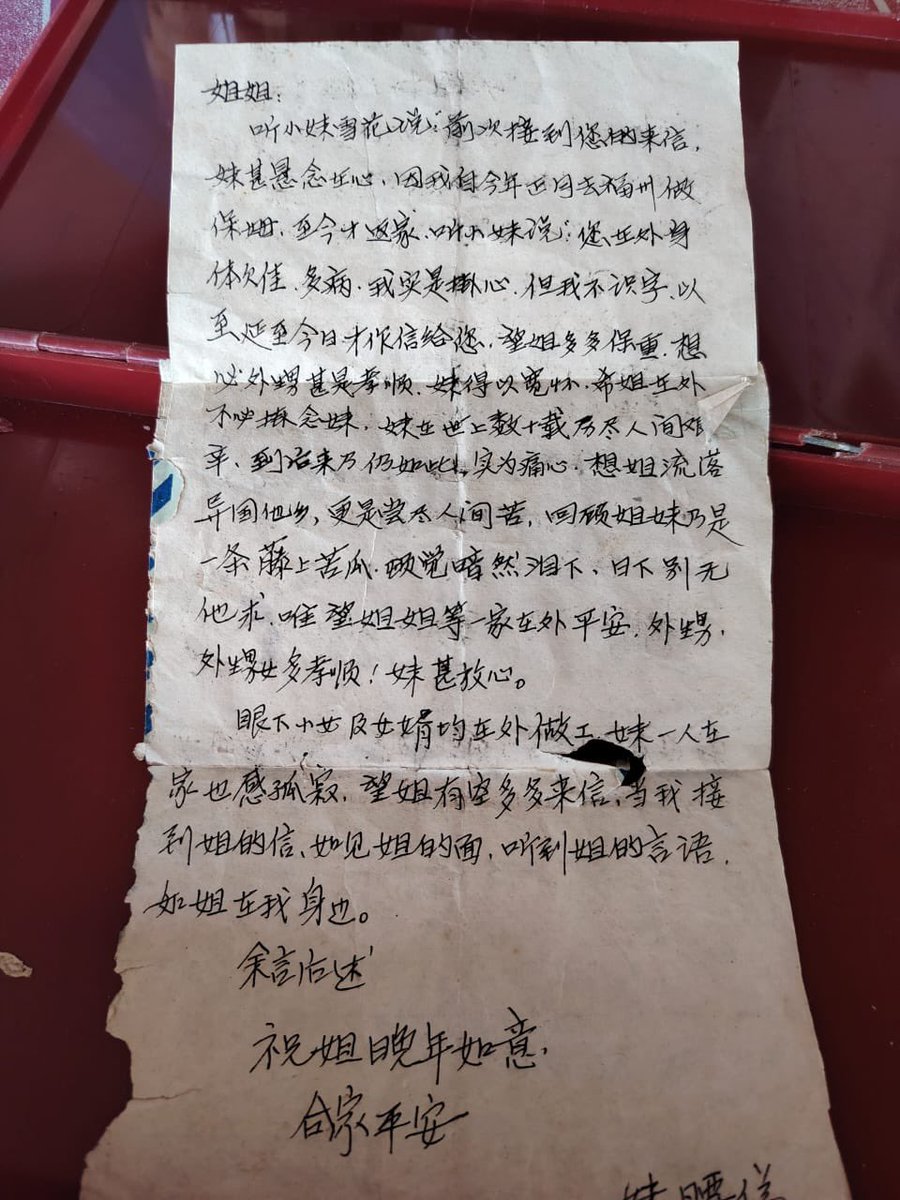 姐姐:
听小妹雪花说:前次接到您的来信,
妹甚悬念在心、因我自今年 月去福州做
保姆、至今才返家、听小妹说:您在外身
体欠佳、多病、我实是挂心、但我不识字、以
至延至今日才作信给您,望姐多多保重、想
必外甥甚是孝顺、妹得以宽怀、希姐在外
不必挂念妹,妹在世上数十载 尽人间艰
辛、到后来乃仍如此,实为痛心、想姐流落
异国他乡,更是尝尽人间苦,回顾姐妹乃是
一条藤上苦瓜、顿觉暗然泪下、目下别无
他求、唯望姐姐等一家在外平安、外甥、
外甥女多孝顺!妹甚放心。
眼下小女及女婿均在外做工、妹一人在
家也感孤寂,望姐有空多多来信、当我接
到姐的信、如见姐的面,听到姐的言语,
如姐在我身边。
余言后述
祝姐晚年如意、
合家平安
妹